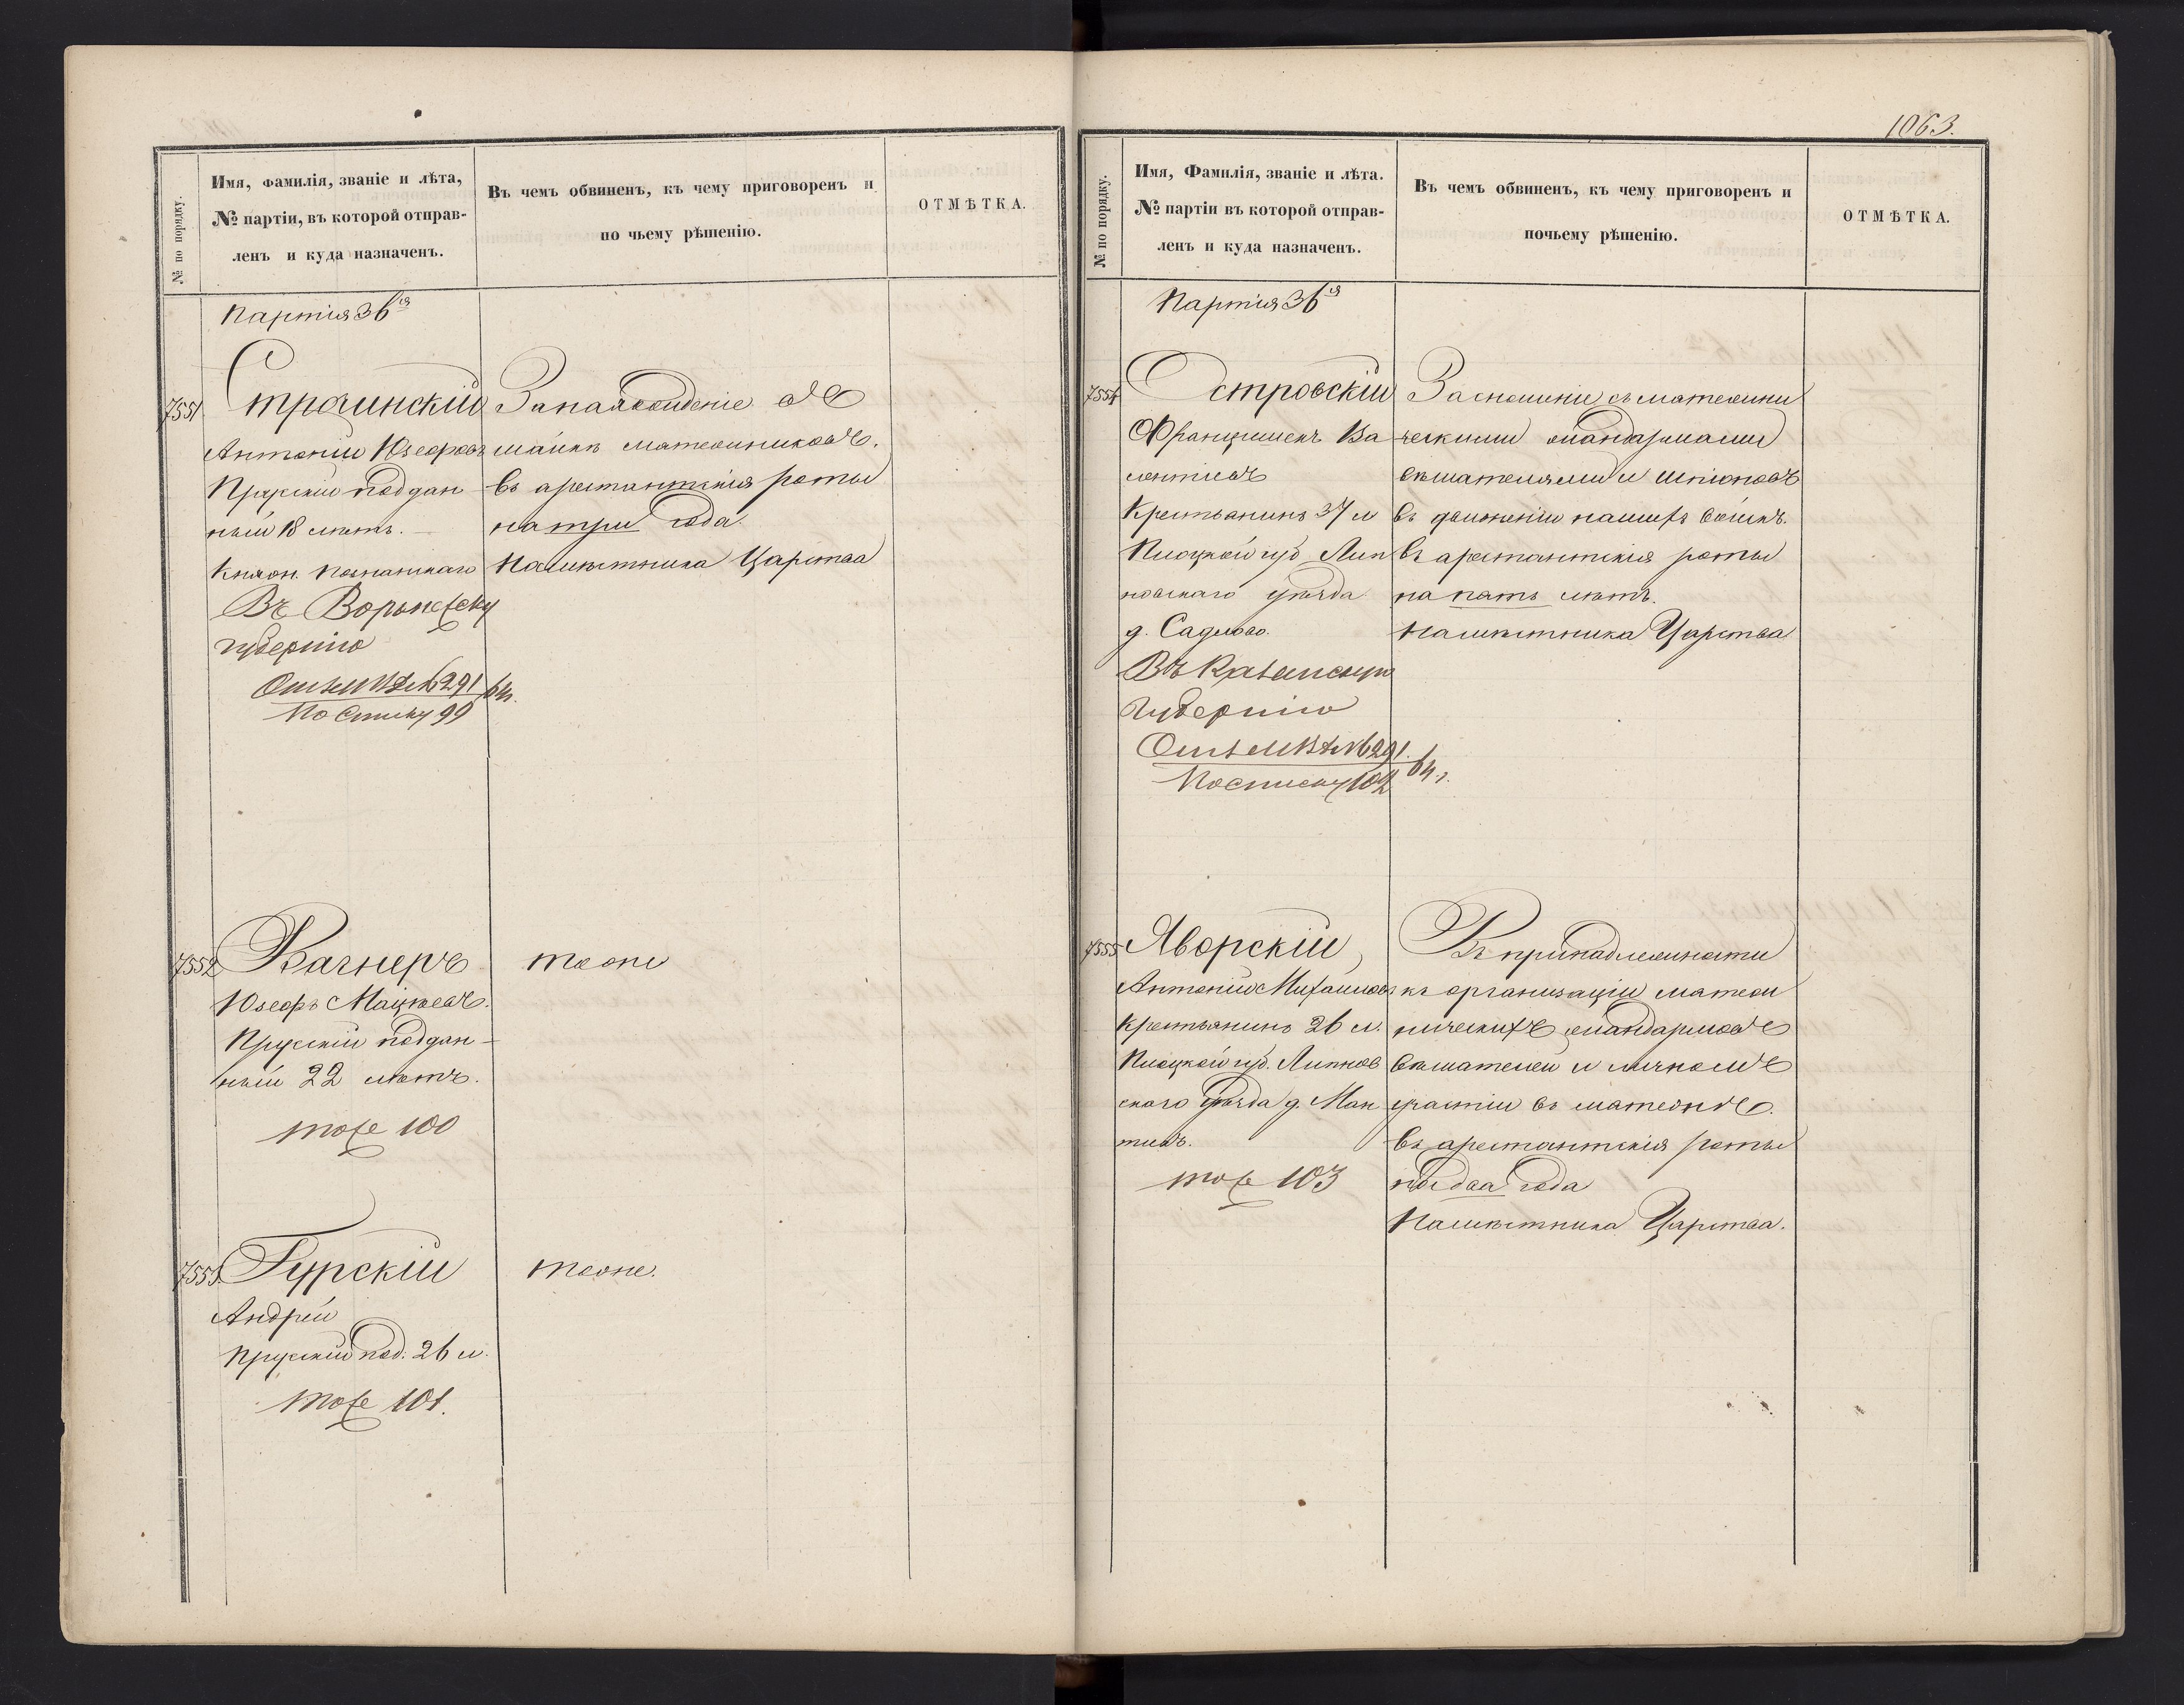 1063.
№ по порядку.
Имя, Фамилія, званіе и лѣта,
№ партіи, въ которой отправ-
ленъ и куда назначенъ.
Въ чемъ обвиненъ, къ чему приговоренъ и
по чьему рѣшенію.
ОТМѢТКА.
Партія 36ая
7551
Строчинскій
Антоній Юзефовъ
Прускій поддан-
ный 18 лѣтъ.
Княж. Познанскаго
Въ Воронежску
губернію
Отъ № 291/64.
По списку 99
За нахожденіе въ
шайкѣ мятежниковъ.
Въ арестантскія роты
на три года.
Намѣстника Царства
7552
Вагнеръ
Юзефъ Мацѣевъ.
Прускій поддан-
ный 22 лѣтъ.
тоже 100
тоже
7553
Гурскій
Андрей
Прускій под. 26 л.
тоже 101.
тоже.
№ по порядку.
Имя, Фамилія, званіе и лѣта.
№ партіи въ которой отправ-
ленъ и куда назначенъ.
Въ чемъ обвиненъ, къ чему приговоренъ и
почьему рѣшенію.
ОТМѢТКА.
Партія 36ая
7554
Островскій
Францишекъ Ва
лентіевъ
Крестьянинъ 37 л
Плоцкой губ Лип
новскаго уѣзда
д.
Въ Казанскую
Губернію
Отъ № 291. 64 г.
По списку 102
За сношеніе съ мятежни
ческими жандармами
вѣшателями и шпіоновъ
въ движеніи нашихъ войскъ.
Въ арестантскія роты
на пять лѣтъ.
Намѣстника Царства
7555
Яворскій
Антоній Михаиловъ
Крестьянинъ 26 л.
Плоцкой губ. Липнов
скаго уѣзда д. Ман
тоже 103
Въ принадлежности
къ организаціи мятеж
ническихъ жандармовъ
вѣшателей и личномъ
участіи въ мятежѣ.
Въ арестантскія роты
на два года
Намѣстника Царства.